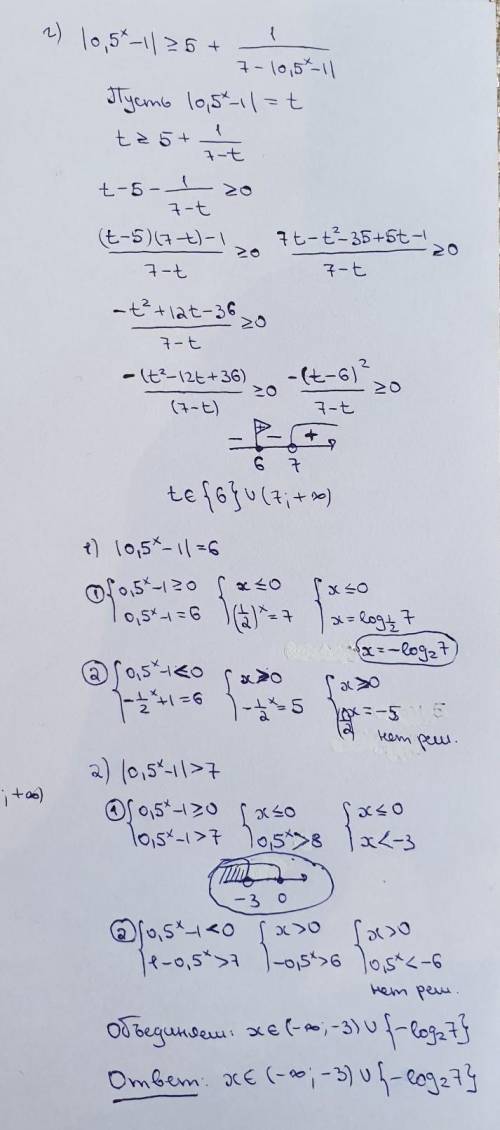 г) |0,5ˣ-1| ≥ 5 + 1/(7-|0,5ˣ-1|)
Пусть |0,5ˣ-1| = t
t ≥ 5 + 1/(7-t)
t-5- 1/(7-t) ≥0
((t-5)(7-t)-1)/(7-t) ≥0 (7t-t²-35+5t-1)/(7-t) ≥0
(-t²+12t-36)/(7-t) ≥0
-(t²-12t+36)/(7-t) ≥0 -(t-6)²/(7-t) ≥0
- + - +
6 7
t∈{6}∪(7;+∞)
1) |0,5ˣ-1|=6
① {0,5ˣ-1≥0 {x≤0 {x≤0
0,5ˣ-1=6 (1/2)ˣ=7 x=log_{1/2}7
x=-log₂7
② {0,5ˣ-1<0 {x>0 {x>0
-1/2ˣ+1=6 -1/2ˣ=5 1/2ˣ=-5
нет реш.
2) |0,5ˣ-1|>7
;+∞)
① {0,5ˣ-1≥0 {x≤0 {x≤0
0,5ˣ-1>7 0,5ˣ>8 x<-3
-3 0
② {0,5ˣ-1<0 {x>0 {x>0
1-0,5ˣ>7 -0,5ˣ>6 0,5ˣ<-6
нет реш.
Объединяем: x∈(-∞;-3)∪{-log₂7}
Ответ: x∈(-∞;-3)∪{-log₂7}